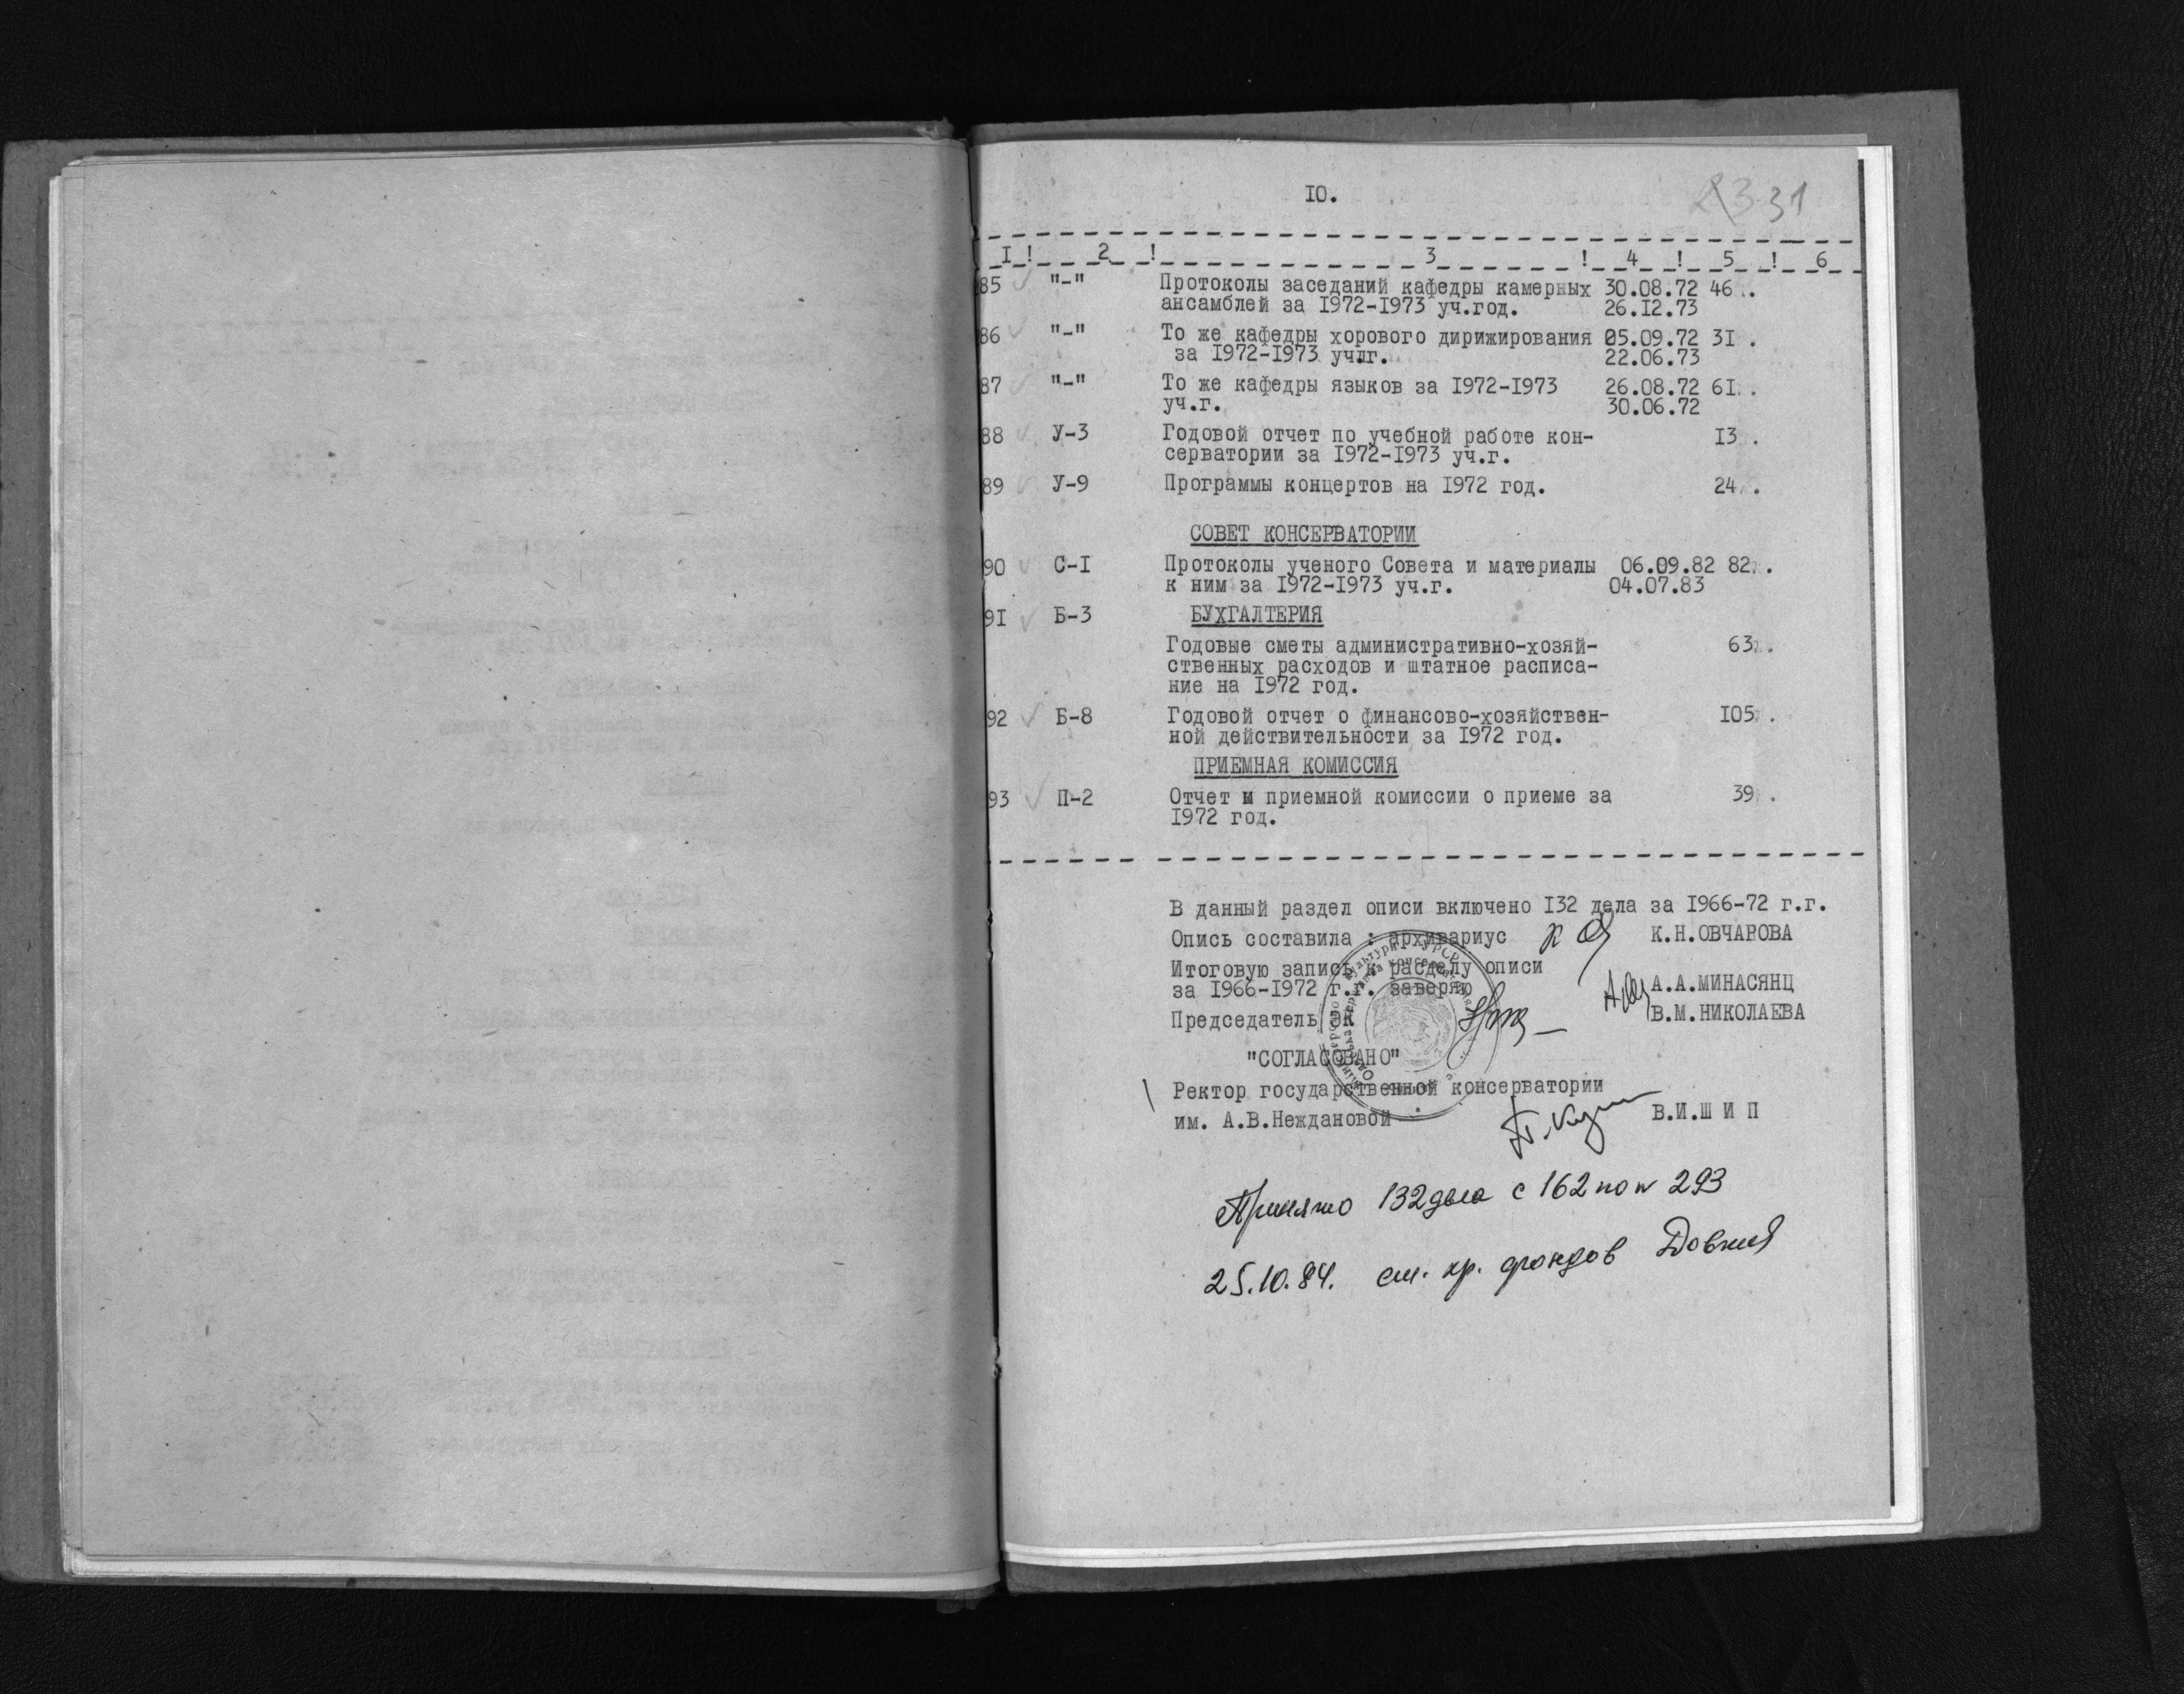 10.
31
I ! 2 ! 3 ! 4 ! 5 ! 6
85 "-" Протоколы заседаний кафедры камерных 30.08.72 46 .
ансамблей за 1972-1973 уч.год. 26.12.73
86 "-" То же кафедры хорового дирижирования 05.09.72 31 .
за 1972-1973 уч.г. 22.06.73
87 "-" То же кафедры языков за 1972-1973 26.08.72 61 .
уч.г. 30.06.72
88 У-3 Годовой отчет по учебной работе кон- 13 .
серватории за 1972-1973 уч.г.
89 У-9 Программы концертов на 1972 год. 24 .
СОВЕТ КОНСЕРВАТОРИИ
90 С-1 Протоколы ученого Совета и материалы 06.09.82 82 .
к ним за 1972-1973 уч.г. 04.07.83
91 Б-3 БУХГАЛТЕРИЯ
Годовые сметы административно-хозяй- 63 .
ственных расходов и штатное расписа-
ние на 1972 год.
92 Б-8 Годовой отчет о финансово-хозяйствен- 105 .
ной действительности за 1972 год.
ПРИЕМНАЯ КОМИССИЯ
93 П-2 Отчет приемной комиссии о приеме за 39 .
1972 год.
В данный раздел описи включено 132 дела за 1966-72 г.г.
Опись составила : архивариус К.Н.ОВЧАРОВА
Итоговую запись к разделу описи
за 1966-1972 г.г. заверяю А.А.МИНАСЯНЦ
Председатель ЭК В.М.НИКОЛАЕВА
"СОГЛАСОВАНО"
Ректор государственной консерватории
им. А.В.Неждановой В.И.Ш И П
Принято 132 дела с 162 по 293
25.10.84. ст. хр. фондов